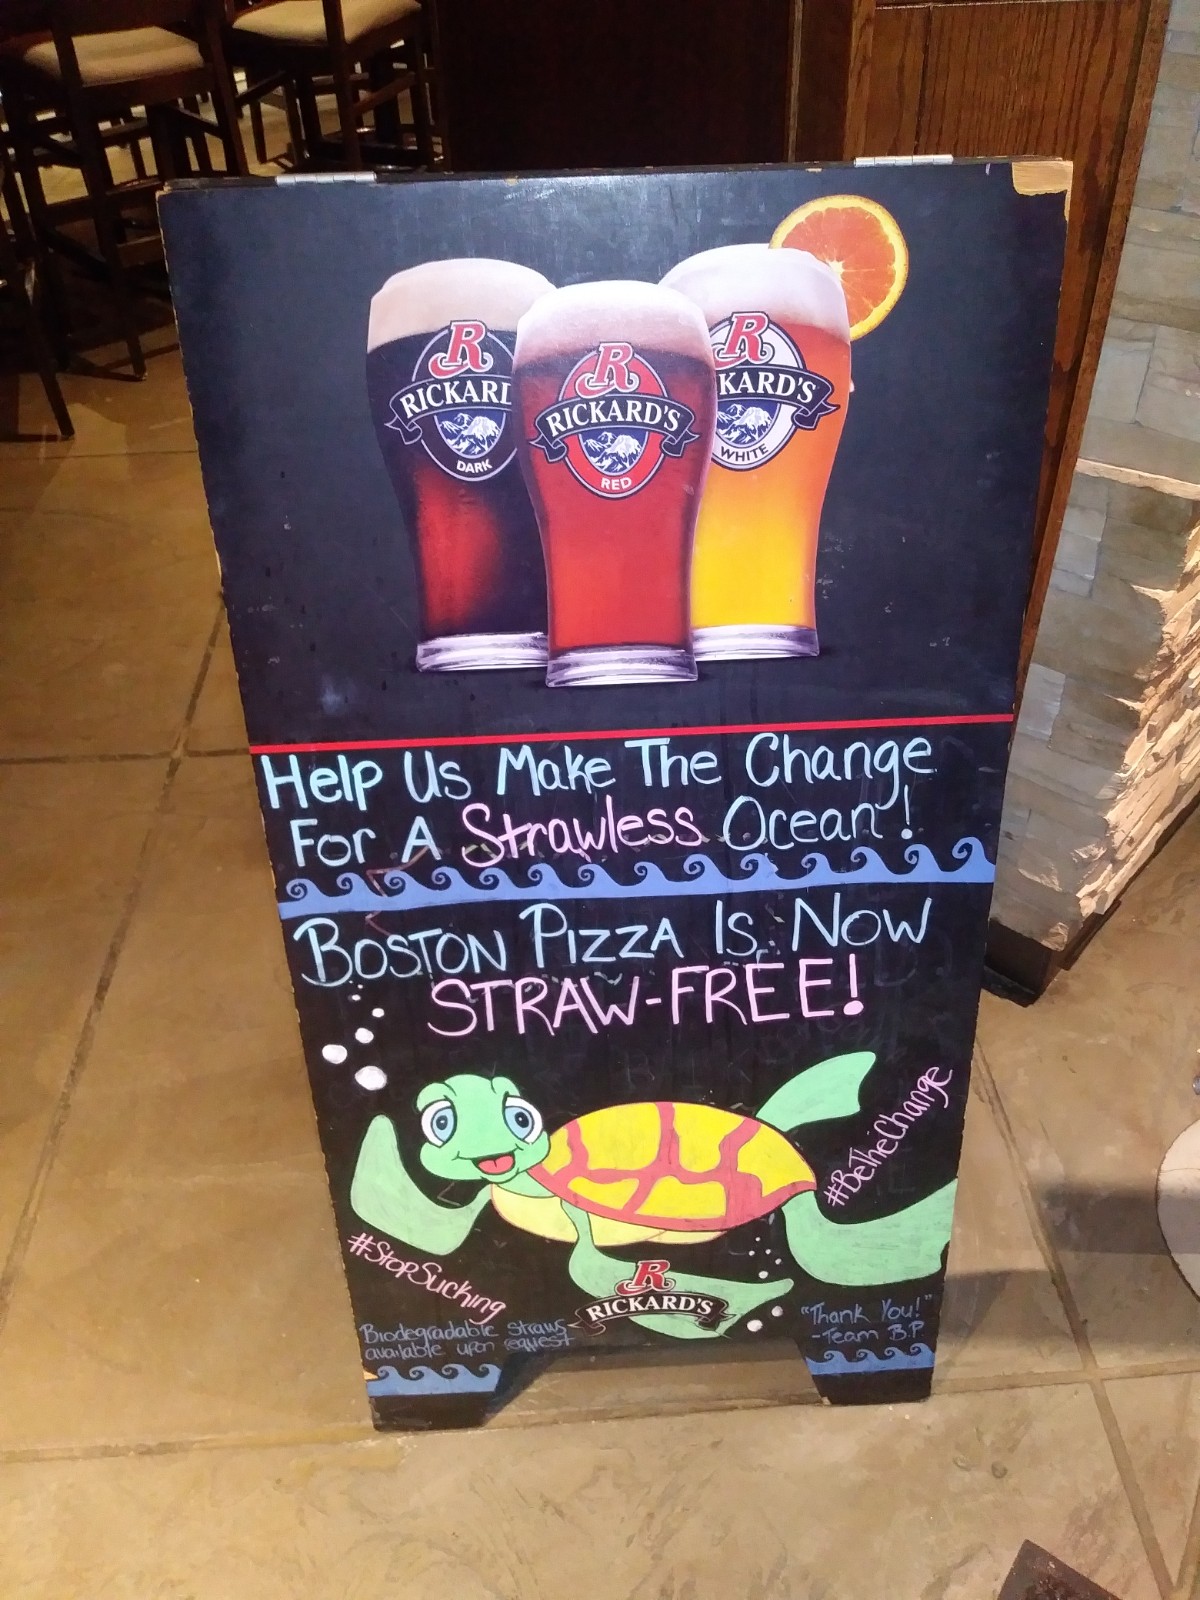 R
RICKARD'S
DARK
R
RICKARD'S
RED
R
KARD'S
WHITE
Help Us Make The Change
For A Strawless Ocean!
BOSTON PIZZA IS NOW
STRAW-FREE!
#BeTheChange
#StopSucking
R
RICKARD'S
Biodegradable straws
available upon request
"Thank You!"
-Team B.P.